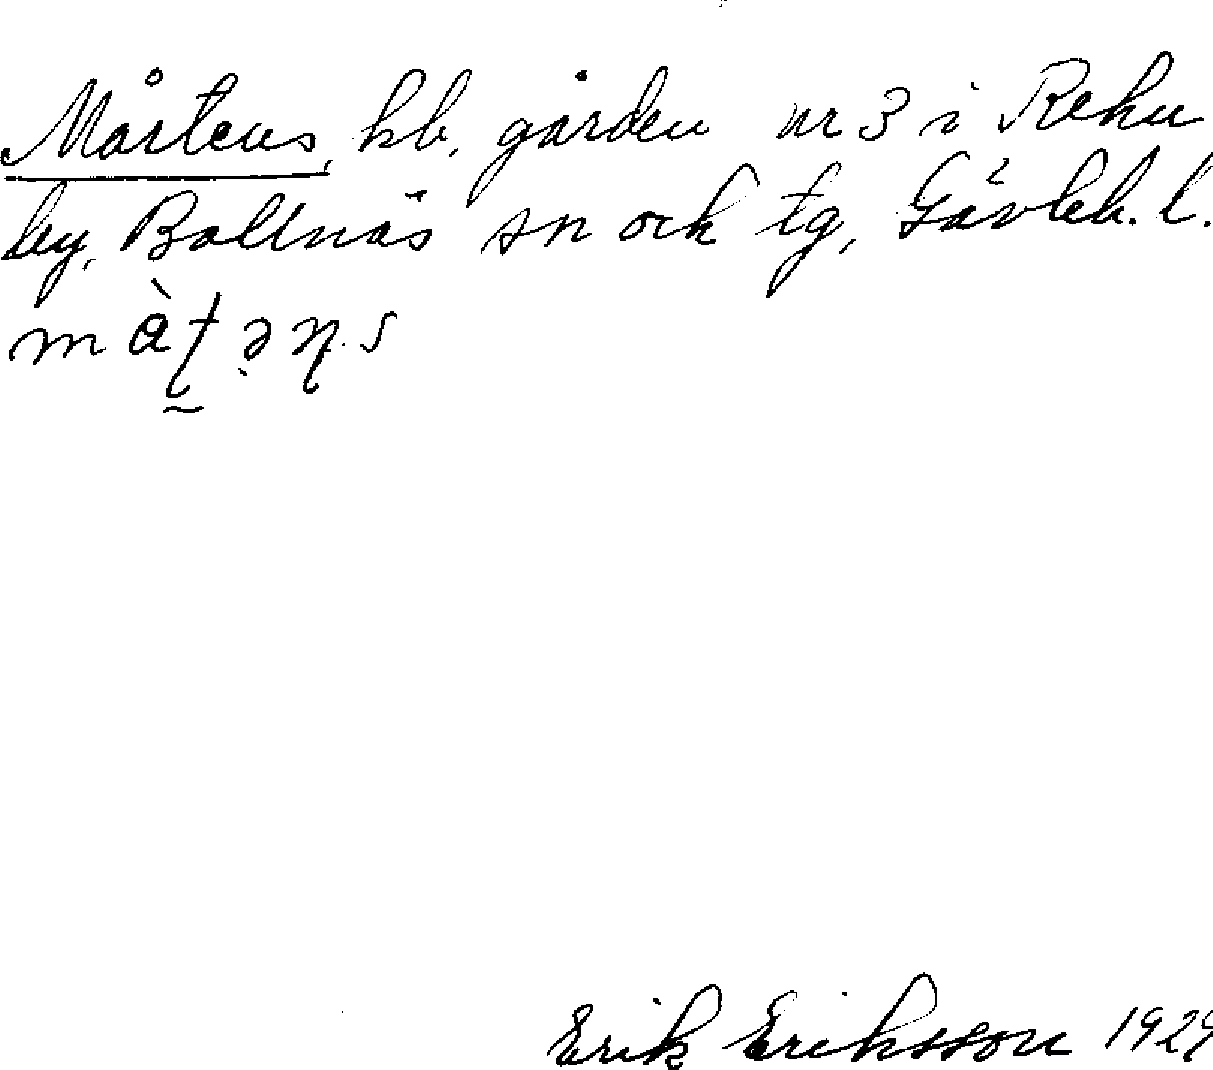 Mårtens, hb. gården nr 3 i Rehn
by, Bollnäs sn och tg, Gävleb. l.
Erik Eriksson 1929